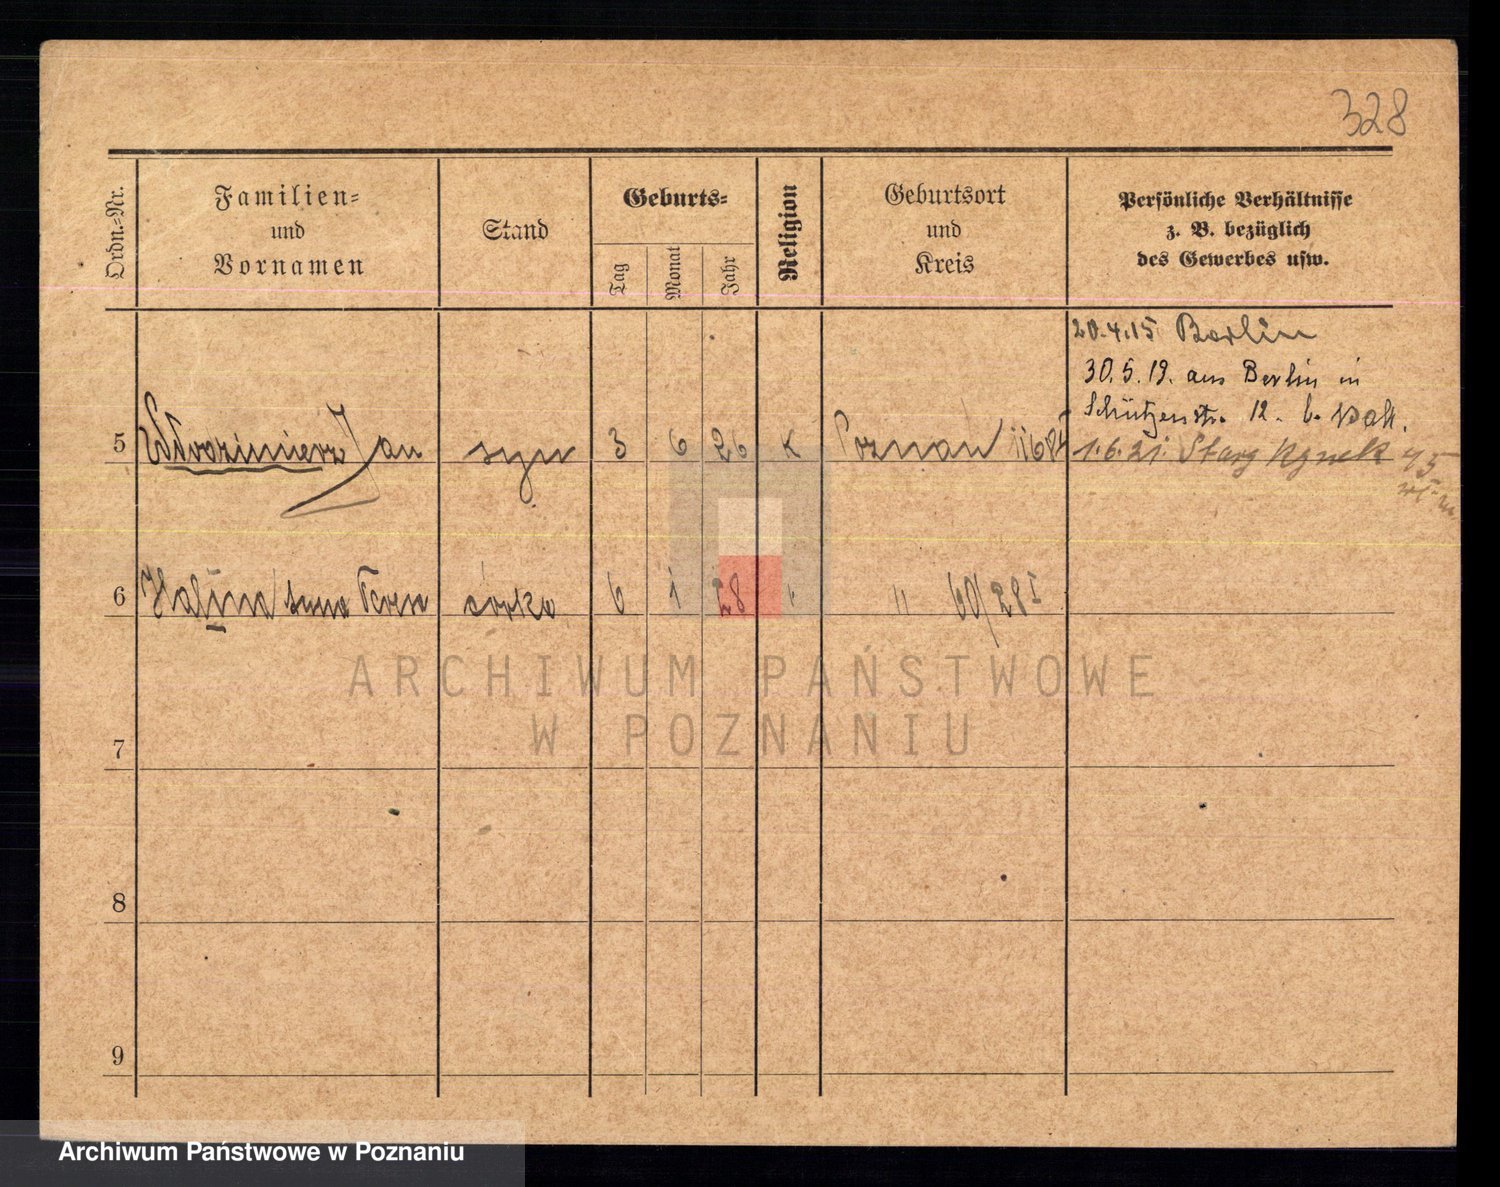 328
Ordn.-Nr.
Familien-
und
Vornamen
Stand
Geburts-
Tag
Monat
Jahr
Religion
Geburtsort
und
Kreis
Persönliche Verhältnisse
z. B. bezüglich
des Gewerbes usw.
20.4.15 Berlin
30.5.19. aus Berlin in
Schützenstr. 12. b.
5 Włodzimierz Jan syn 3 6 26 k Poznań 1.6.21. Stary Rynek 45
6 Halina córka 6 1 28 " 60/28 I
7
8
9
ARCHIWUM PAŃSTWOWE
W POZNANIU
Archiwum Państwowe w Poznaniu